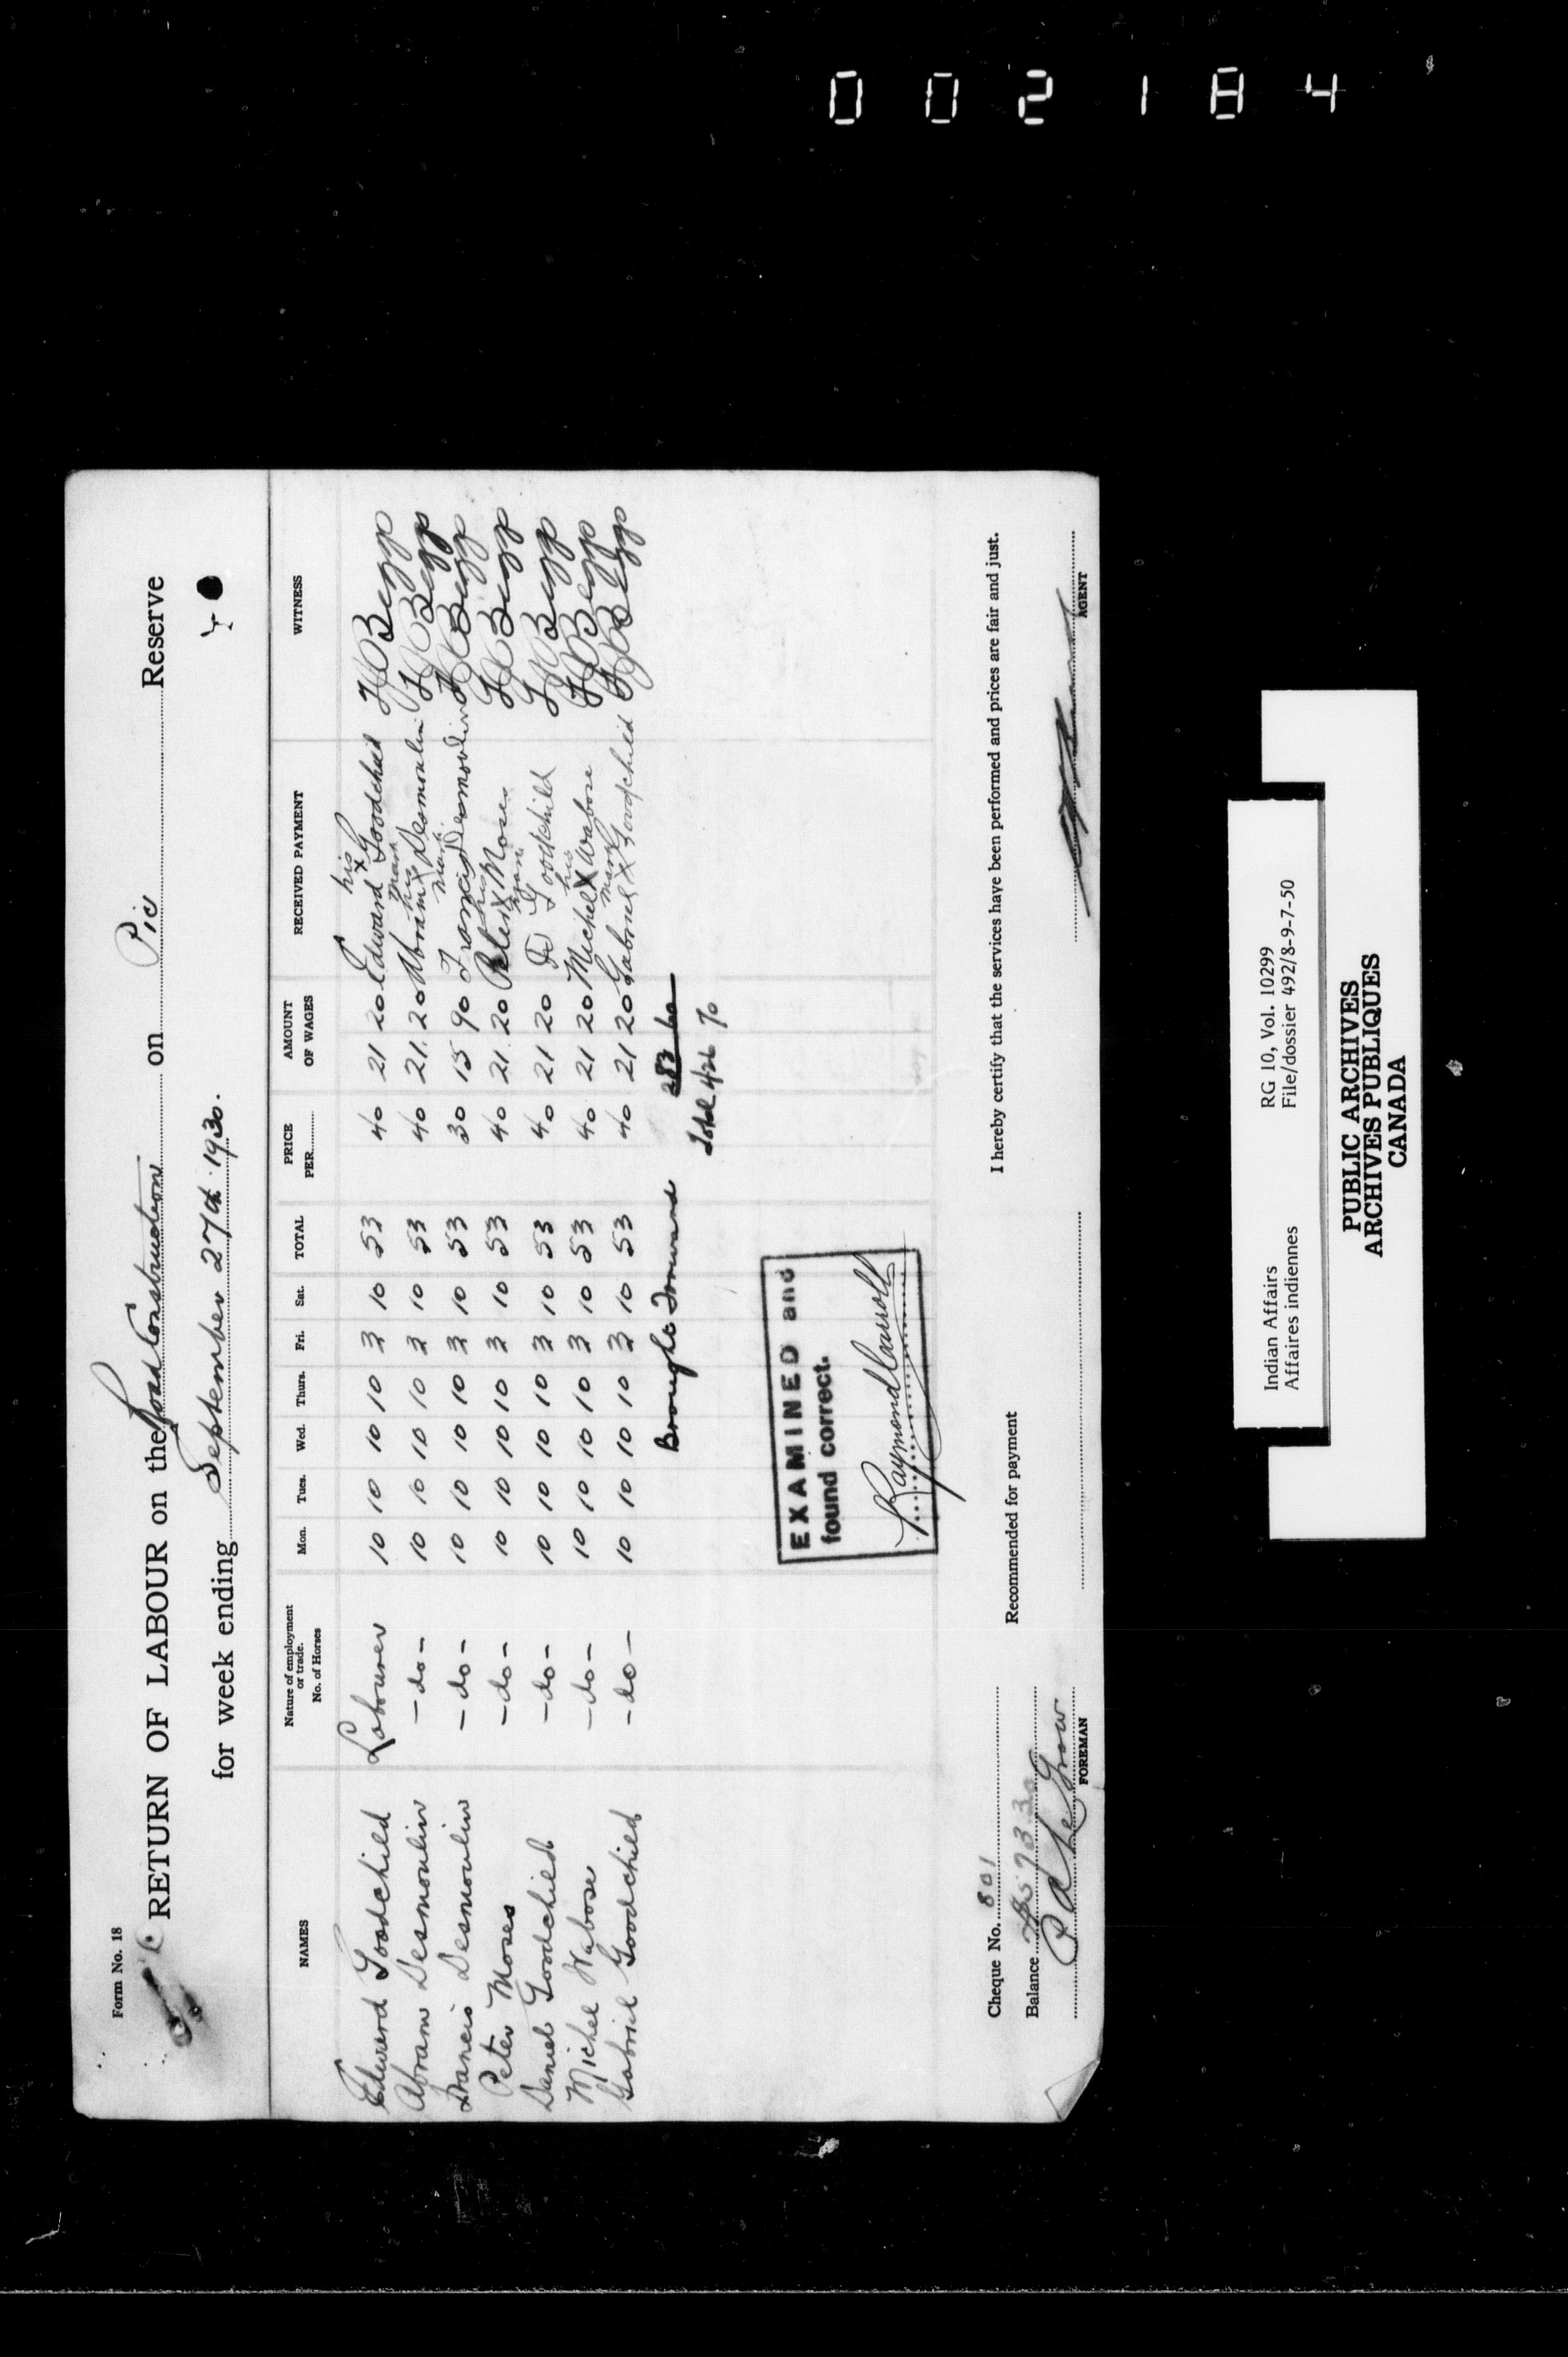 002184
Form No. 18
RETURN OF LABOUR on the Road Construction on Pic Reserve
for week ending September 27th 1930.
NAMES Nature of employment or trade. No. of Horses Mon. Tues. Wed. Thurs. Fri. Sat. TOTAL PRICE PER AMOUNT OF WAGES RECEIVED PAYMENT WITNESS
Edward Goodchild Labourer 10 10 10 10 3 10 53 40 21 20 Edward his X mark Goodchild H Begg
Abram Desmoulin -do- 10 10 10 10 3 10 53 40 21.20 Abram his X mark Desmoulin H Begg
Francis Desmoulin -do- 10 10 10 10 3 10 53 30 15 90 Francis Desmoulin H Begg
Peter Moses -do- 10 10 10 10 3 10 53 40 21.20 Peter his X mark Moses H Begg
Daniel Goodchild -do- 10 10 10 10 3 10 53 40 21 20 Goodchild H Begg
Michel Wabose -do- 10 10 10 10 3 10 53 40 21 20 Michel his X mark Wabose H Begg
Gabriel Goodchild -do- 10 10 10 10 3 10 53 40 21 20 Gabriel X Goodchild H Begg
Brought Forward 283 60
Total 426 70
EXAMINED and
found correct.
Raymond Carroll
Cheque No. 801
Recommended for payment
I hereby certify that the services have been performed and prices are fair and just.
Balance $573 30
FOREMAN
AGENT
Indian Affairs RG 10, Vol. 10299
Affaires indiennes File/dossier 492/8-9-7-50
PUBLIC ARCHIVES
ARCHIVES PUBLIQUES
CANADA